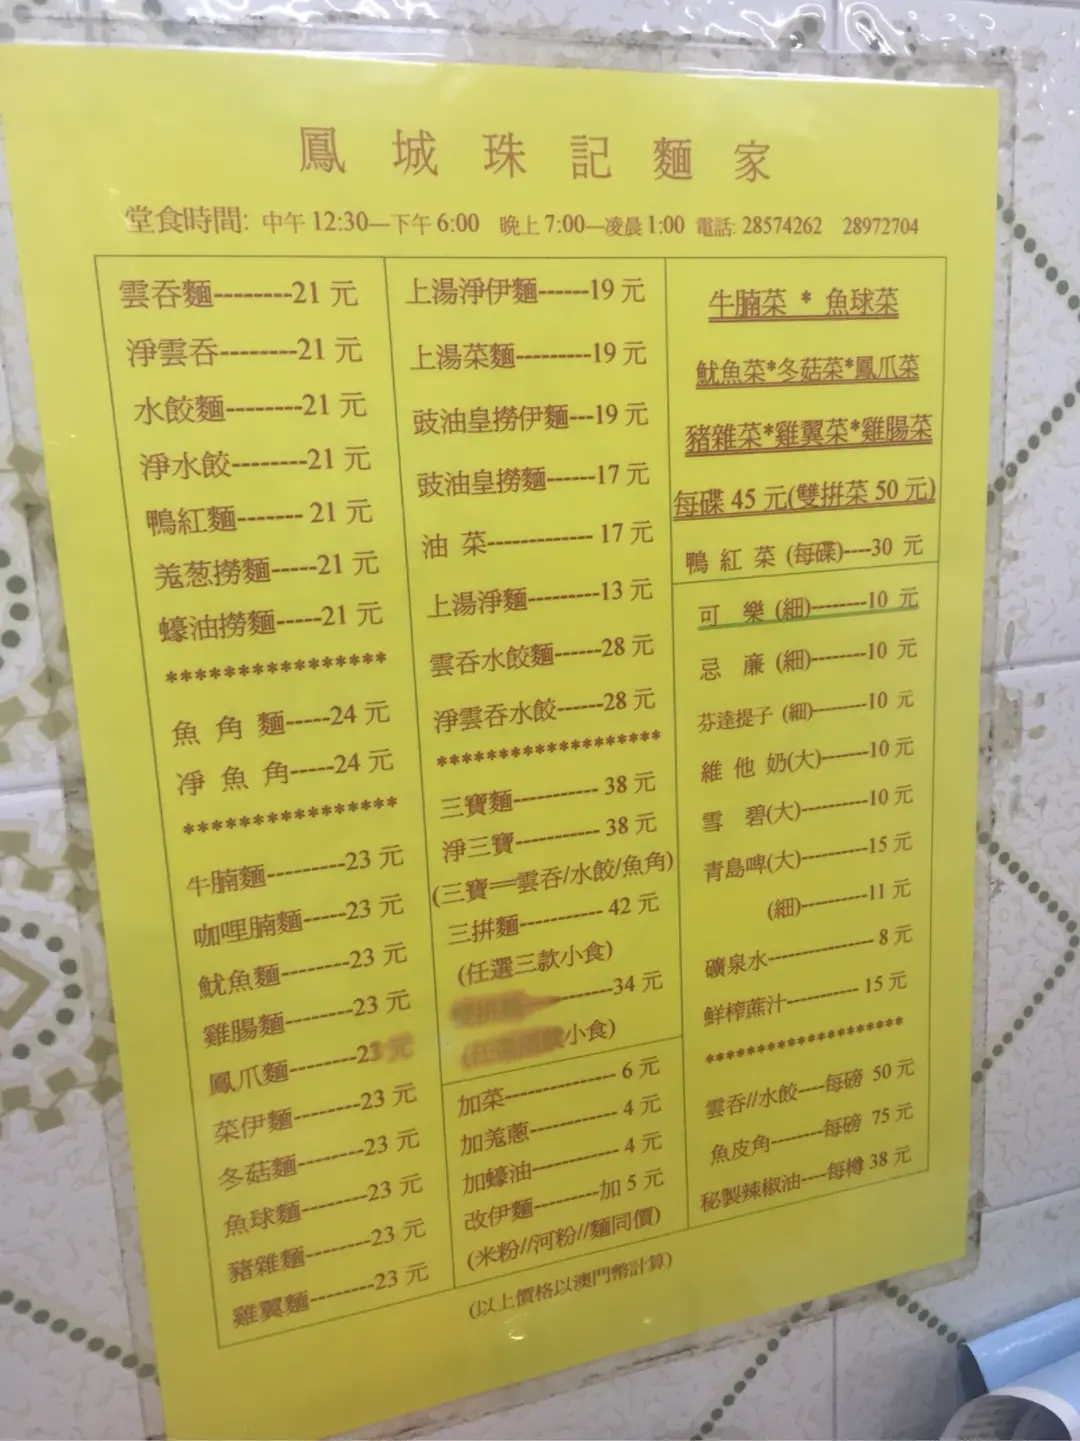 鳳城珠記麵家
堂食時間: 中午 12:30—下午 6:00 晚上 7:00—凌晨 1:00 電話: 28574262 28972704
雲吞麵--------21 元
淨雲吞--------21 元
水餃麵--------21 元
淨水餃--------21 元
鴨紅麵-------21 元
羗葱撈麵-----21 元
蠔油撈麵-----21 元
****************
魚角麵-----24 元
凈魚角-----24 元
****************
牛腩麵--------23 元
咖哩腩麵----23 元
魷魚麵-------23 元
雞腸麵-------23 元
鳳爪麵-------23 元
菜伊麵-------23 元
冬菇麵-------23 元
魚球麵-------23 元
豬雜麵-------23 元
雞翼麵-------23 元
上湯淨伊麵------19 元
上湯菜麵---------19 元
豉油皇撈伊麵---19 元
豉油皇撈麵------17 元
油菜-------------17 元
上湯淨麵---------13 元
雲吞水餃麵------28 元
淨雲吞水餃------28 元
*******************
三寶麵----------- 38 元
淨三寶----------- 38 元
(三寶==雲吞/水餃/魚角)
三拼麵----------- 42 元
(任選三款小食)
------34 元
小食)
加菜-------------- 6 元
加羗蔥----------- 4 元
加蠔油----------- 4 元
改伊麵--------加 5 元
(米粉//河粉//麵同價)
牛腩菜 * 魚球菜
魷魚菜*冬菇菜*鳳爪菜
豬雜菜*雞翼菜*雞腸菜
每碟 45 元(雙拼菜 50 元)
鴨紅菜 (每碟)----30 元
可樂 (細)--------10 元
忌廉 (細)--------10 元
芬達提子 (細)-------10 元
維他奶(大)------10 元
雪碧(大)---------10 元
青島啤(大)----------15 元
(細)----------11 元
礦泉水--------------- 8 元
鮮榨蔗汁---------- 15 元
*******************
雲吞//水餃----每磅 50 元
魚皮角--------每磅 75 元
秘製辣椒油----每樽 38 元
(以上價格以澳門幣計算)